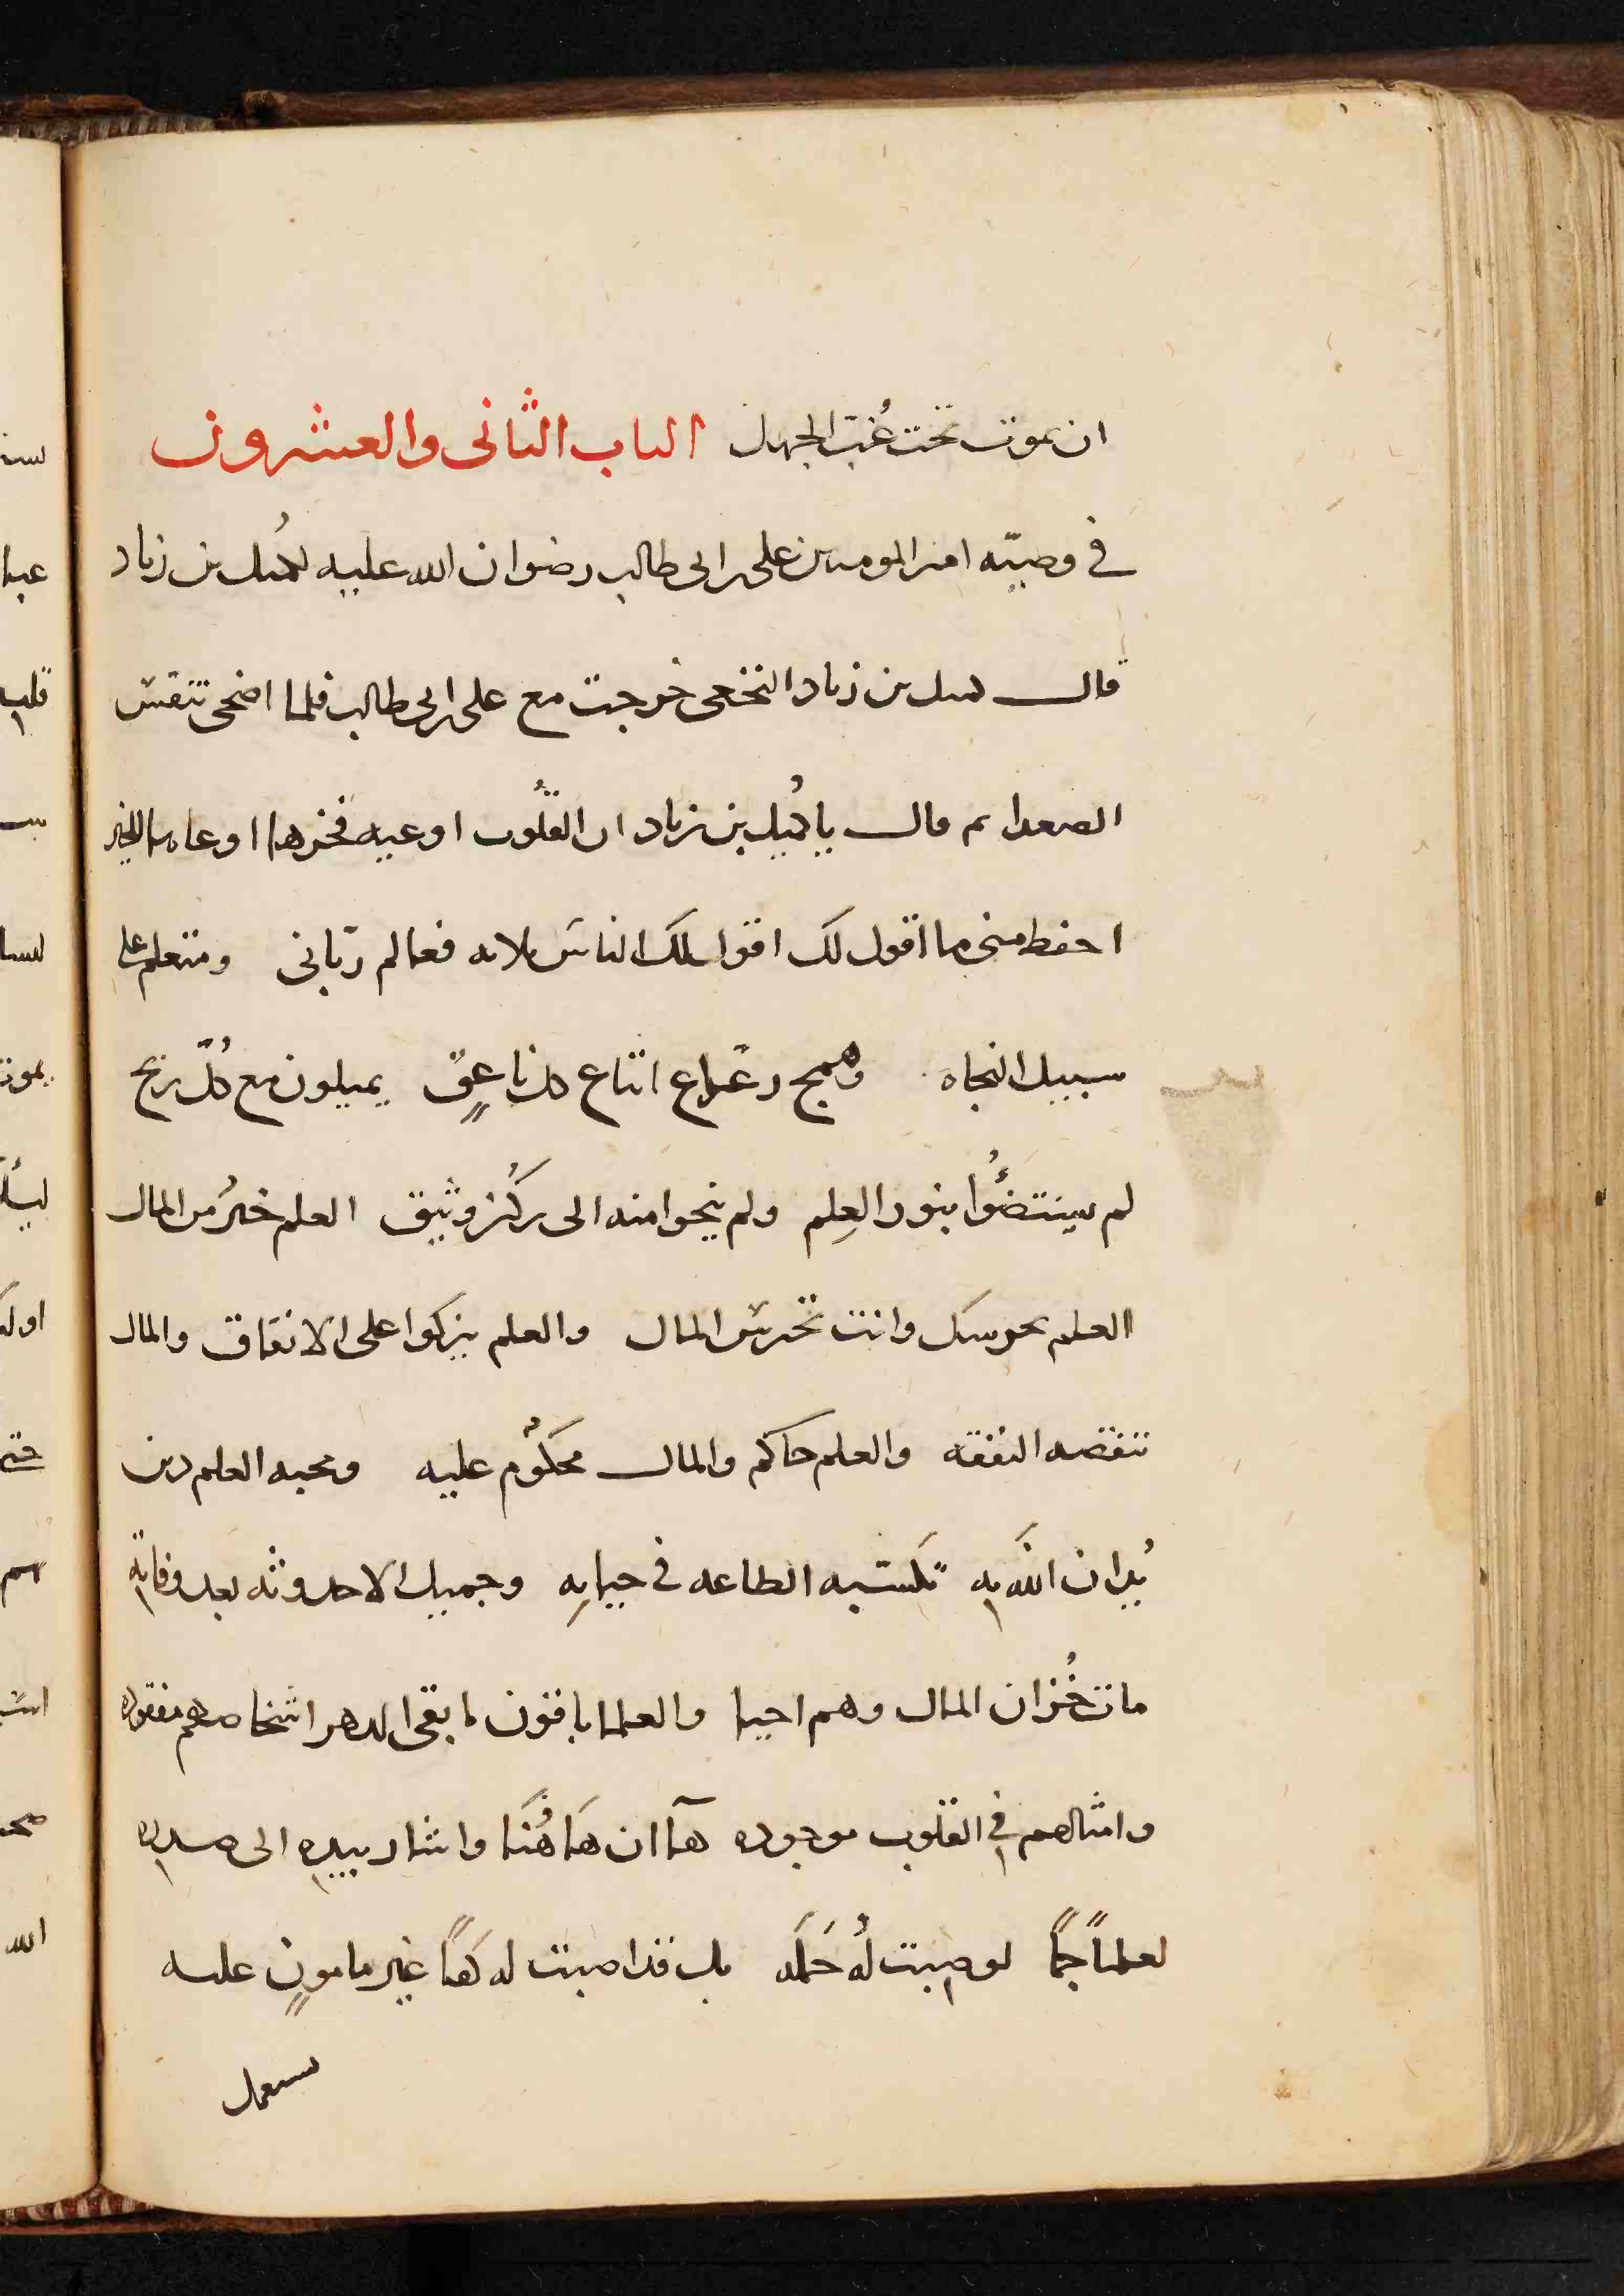 ان يموت تحت غُبّ الجهل الباب الثانى والعشرون
فى وصيّه امير المومنين على بن ابى طالب رضوان الله عليه لكُميل بن زياد
قال كميل بن زياد النخعى خرجت مع على بن ابى طالب فلما اضحى تنفس
الصعدا ثم قال يا كُميل بن زياد ان القلُوب اوعيه فخيرها اوعاها للخير
احفظ منى ما اقول لك اقول لك الناس ثلاثه فعالم ربّانى ومتعلم على
سبيل النجاه وهمج رعاع اتباع كل ناعقٍ يميلون مع كُلّ ريح
لم يستضئُوا بنور العِلم ولم ينحوا منه الى ركُن وثيق العلم خيرُ من المال
العلم يحرسك وانت تحرس المال والعلم يزكوا على الانفاق والمال
تنقصه النفقه والعلم حاكم والمال محكُوم عليه ومحبه العلم دين
يُدان الله به تكسبه الطاعه فى حياتِه وجميل الاحدوثه بعد وفاته
مات خُزان المال وهم احيا والعلما باقون ما بقى الدهر اشخاصهم مفقوده
وامثالهم فى القلوب موجوده هآ ان هَاهُنَا واشار بيده الى صدره
لعلماً جماً لو اصبت لهُ حَمَلَه بل قد اصبت له لَقناً غير مامونٍ عليه
يستعمل